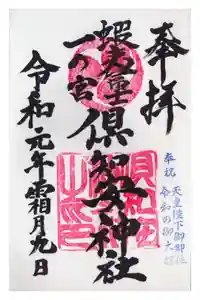 奉拝
奉祝 天皇陛下御即位
令和の御大礼
蝦夷
一の宮
倶知安神社
令和元年霜月九日